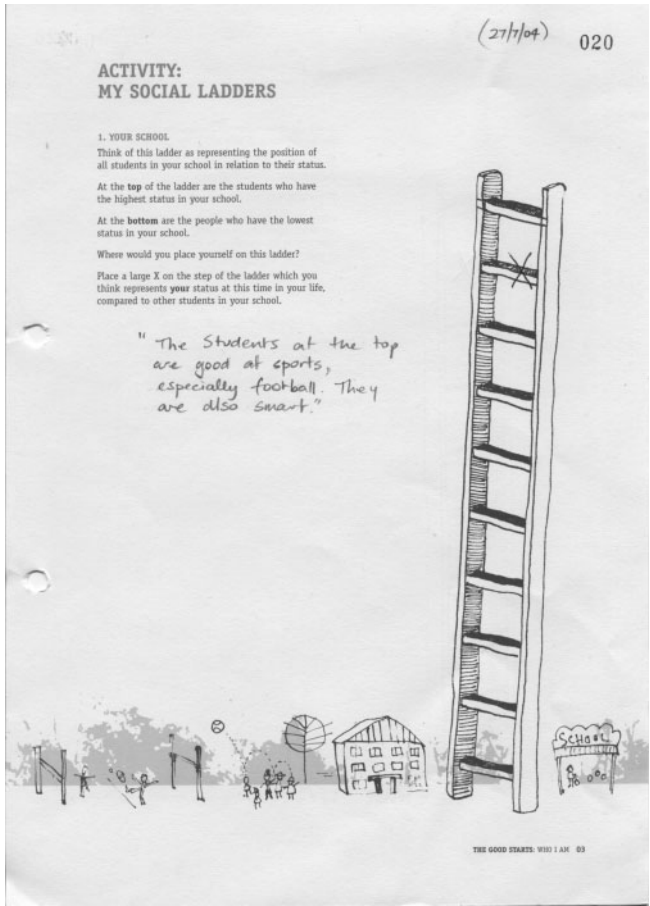 (27/7/04)
020
ACTIVITY:
MY SOCIAL LADDERS
1. YOUR SCHOOL
Think of this ladder as representing the position of
all students in your school in relation to their status.
At the top of the ladder are the students who have
the highest status in your school.
At the bottom are the people who have the lowest
status in your school.
Where would you place yourself on this ladder?
Place a large X on the step of the ladder which you
think represents your status at this time in your life,
compared to other students in your school.
"The Students at the top
are good at sports,
especially football. They
are also smart."
SCHOOL
THE GOOD STARTS: WHO I AM 03